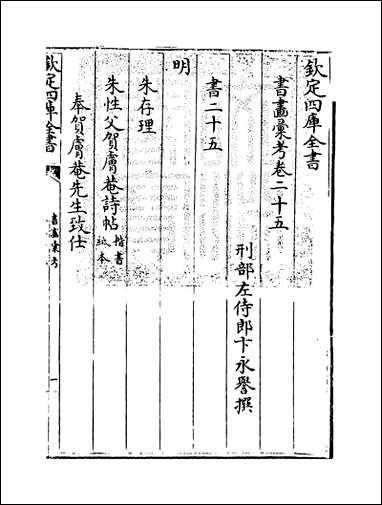 欽定四庫全書
書畫彚考卷二十五
刑部左侍郎卞永譽撰
書二十五
明
朱存理
朱性父賀膚菴詩帖 楷書 紙本
奉賀膚菴先生致仕
欽定四庫全書
書畫彚考
一